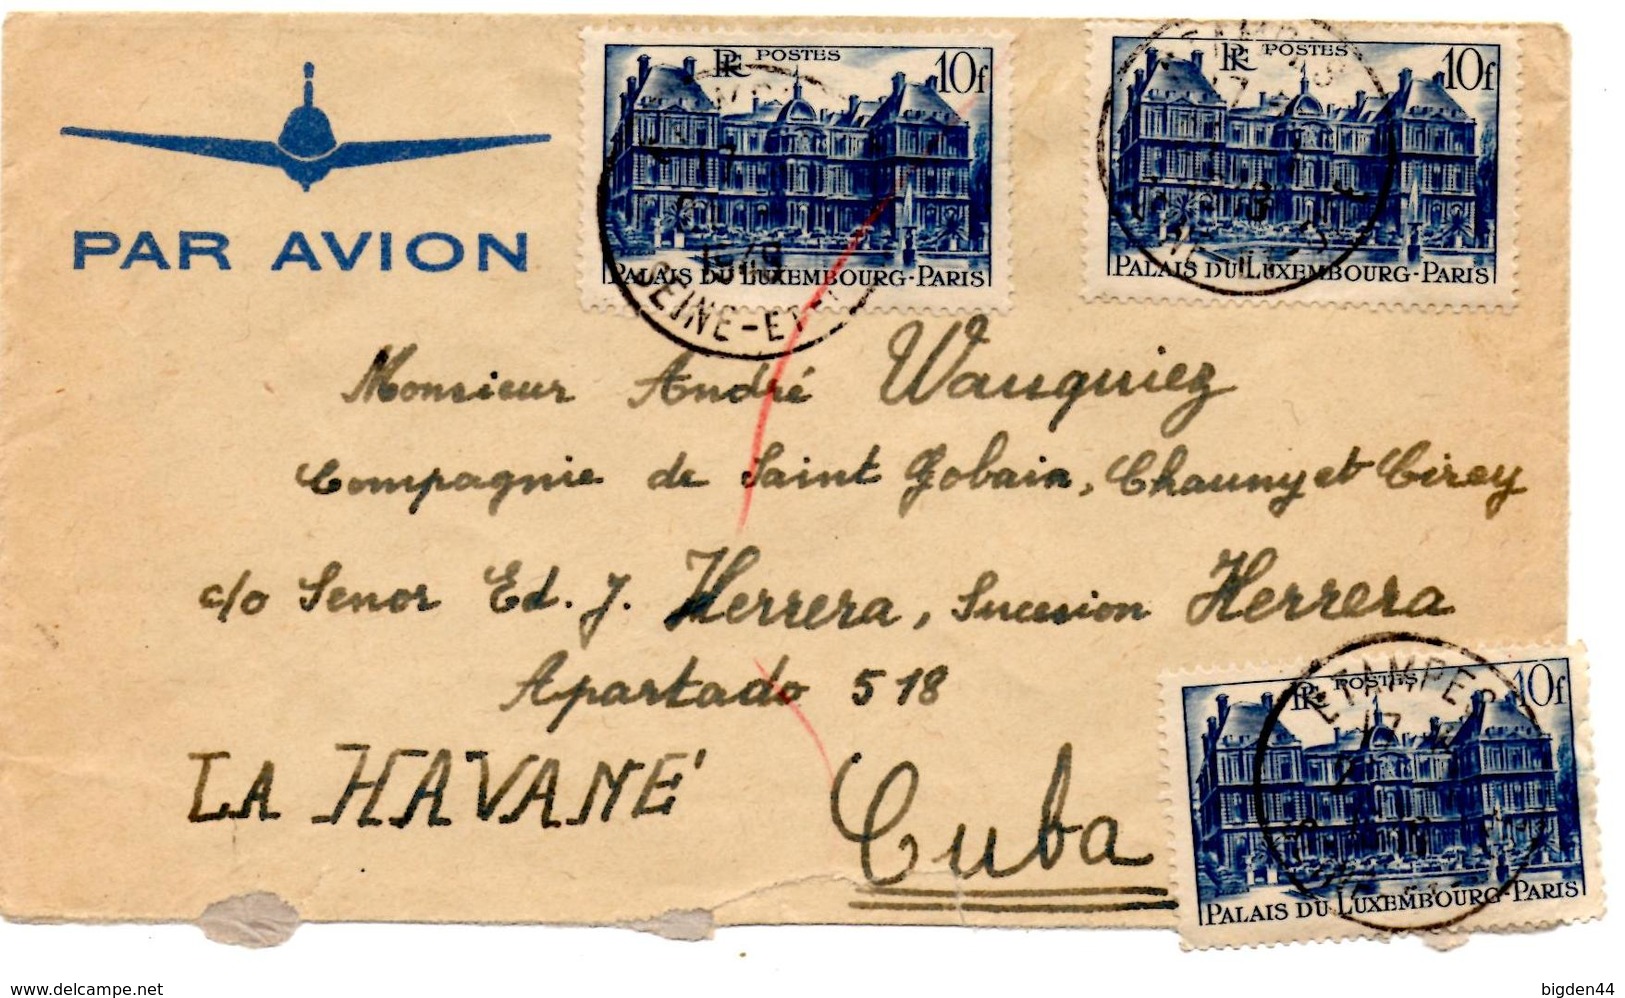 RF POSTES 10f
RF POSTES 10f
PAR AVION
PALAIS DU LUXEMBOURG-PARIS
PALAIS DU LUXEMBOURG-PARIS
17
1949
SEINE-ET-
Monsieur André Wauquiez
Compagnie de Saint Gobain, Chauny et Cirey
c/o Senor Ed. J. Herrera, Sucesion Herrera
Apartado 518
LA HAVANE
Cuba
ETAMPES
17
RF POSTES 10f
PALAIS DU LUXEMBOURG-PARIS
www.delcampe.net
bigden44